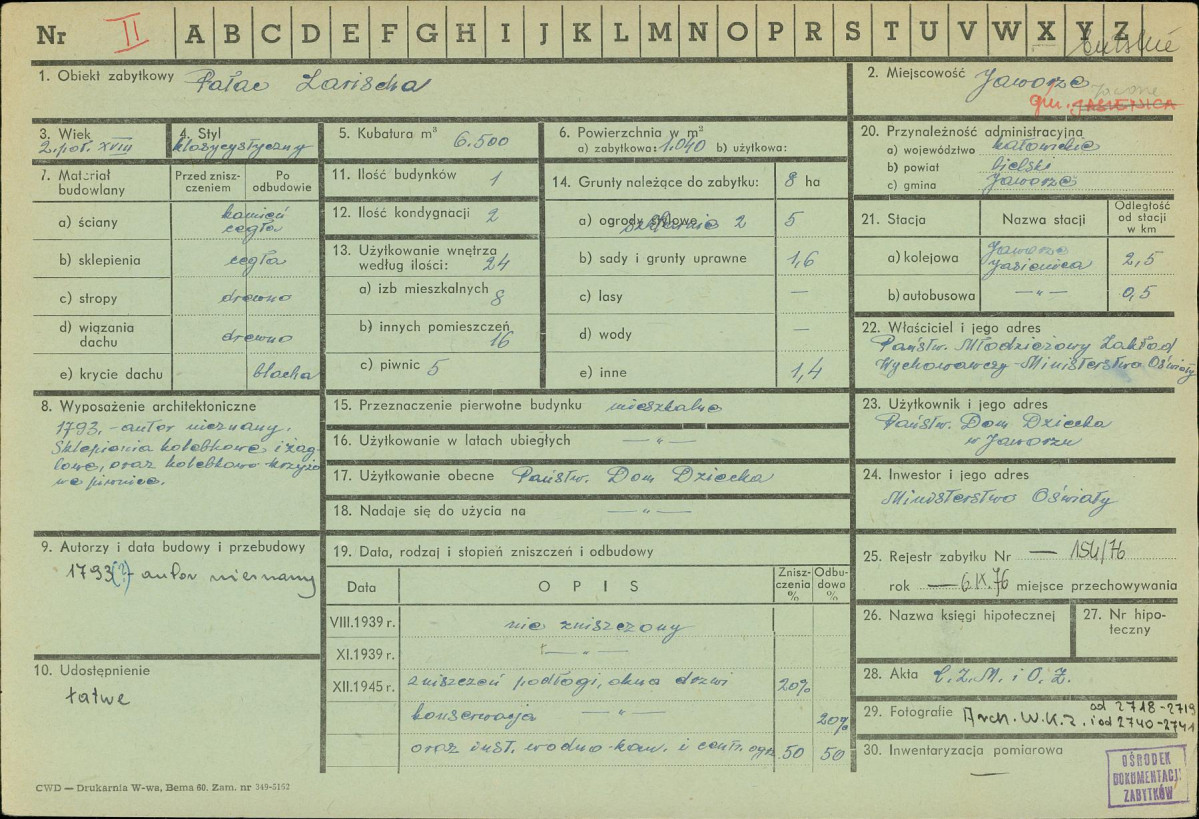 Nr II A B C D E F G H I J K L M N O P R S T U V W X Y Z
bielskie
1. Obiekt zabytkowy Pałac Larischa
2. Miejscowość Jaworze
gm. JASIENICA
3. Wiek
2. poł. XVIII
4. Styl
klasycystyczny
5. Kubatura m³ 6.500
6. Powierzchnia w m²
a) zabytkowa: 1.040 b) użytkowa:
7. Materiał budowlany
Przed zniszczeniem
Po odbudowie
a) ściany kamień cegła
b) sklepienia cegła
c) stropy drewno
d) wiązania dachu drewno
e) krycie dachu blacha
8. Wyposażenie architektoniczne
1793, - autor nieznany.
Sklepienia kolebkowe i żag-
lowe, oraz kolebkowo-krzyżo
we piwnice.
9. Autorzy i data budowy i przebudowy
1793(?) autor nieznany
10. Udostępnienie
łatwe
11. Ilość budynków 1
12. Ilość kondygnacji 2
13. Użytkowanie wnętrza
według ilości: 24
a) izb mieszkalnych 8
b) innych pomieszczeń 16
c) piwnic 5
14. Grunty należące do zabytku: 8 ha
a) ogrody stylowe 2 5
b) sady i grunty uprawne 1,6
c) lasy —
d) wody —
e) inne 1,4
15. Przeznaczenie pierwotne budynku mieszkalne
16. Użytkowanie w latach ubiegłych — „ —
17. Użytkowanie obecne Państw. Dom Dziecka
18. Nadaje się do użycia na — „ —
19. Data, rodzaj i stopień zniszczeń i odbudowy
Data OPIS Zniszczenia % Odbudowa %
VIII.1939 r. nie zniszczony
XI.1939 r. — „ —
XII.1945 r. zniszczeń podłogi, okna drzwi 20%
konserwacja — „ — 20%
oraz inst. wodno-kan. i centr. ogrz. 50 50
20. Przynależność administracyjna
a) województwo katowickie
b) powiat bielski
c) gmina Jaworze
21. Stacja Nazwa stacji Odległość od stacji w km
a) kolejowa Jaworze Jasienica 2,5
b) autobusowa — „ — 0,5
22. Właściciel i jego adres
Państw. Młodzieżowy Zakład
Wychowawczy - Ministerstwo Oświaty
23. Użytkownik i jego adres
Państw. Dom Dziecka
w Jaworzu
24. Inwestor i jego adres
Ministerstwo Oświaty
25. Rejestr zabytku Nr — 154/76
rok — 6 IX. 76 miejsce przechowywania
26. Nazwa księgi hipotecznej
27. Nr hipoteczny
28. Akta C. Z. M. i O. Z.
29. Fotografie Arch. W.K.Z. od 2718-2719
i od 2740-2741
30. Inwentaryzacja pomiarowa
—
OŚRODEK
DOKUMENTACJI
ZABYTKÓW
CWD — Drukarnia W-wa, Bema 60. Zam. nr 349-5162